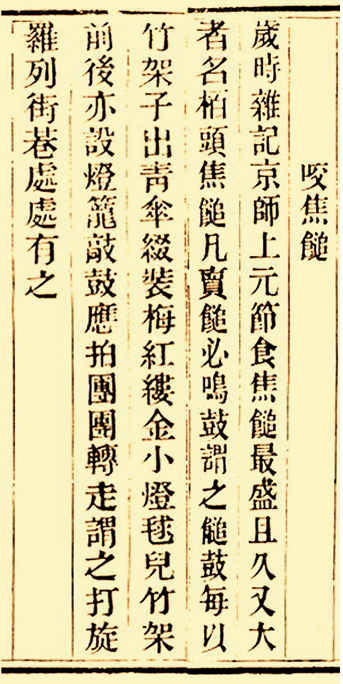 咬焦䭔
歲時雜記京師上元節食焦䭔最盛且久又大
者名柏頭焦䭔凡賣䭔必鳴鼓謂之䭔鼓每以
竹架子出青傘綴裝梅紅縷金小燈毬兒竹架
前後亦設燈籠敲鼓應拍團團轉走謂之打旋
羅列街巷處處有之